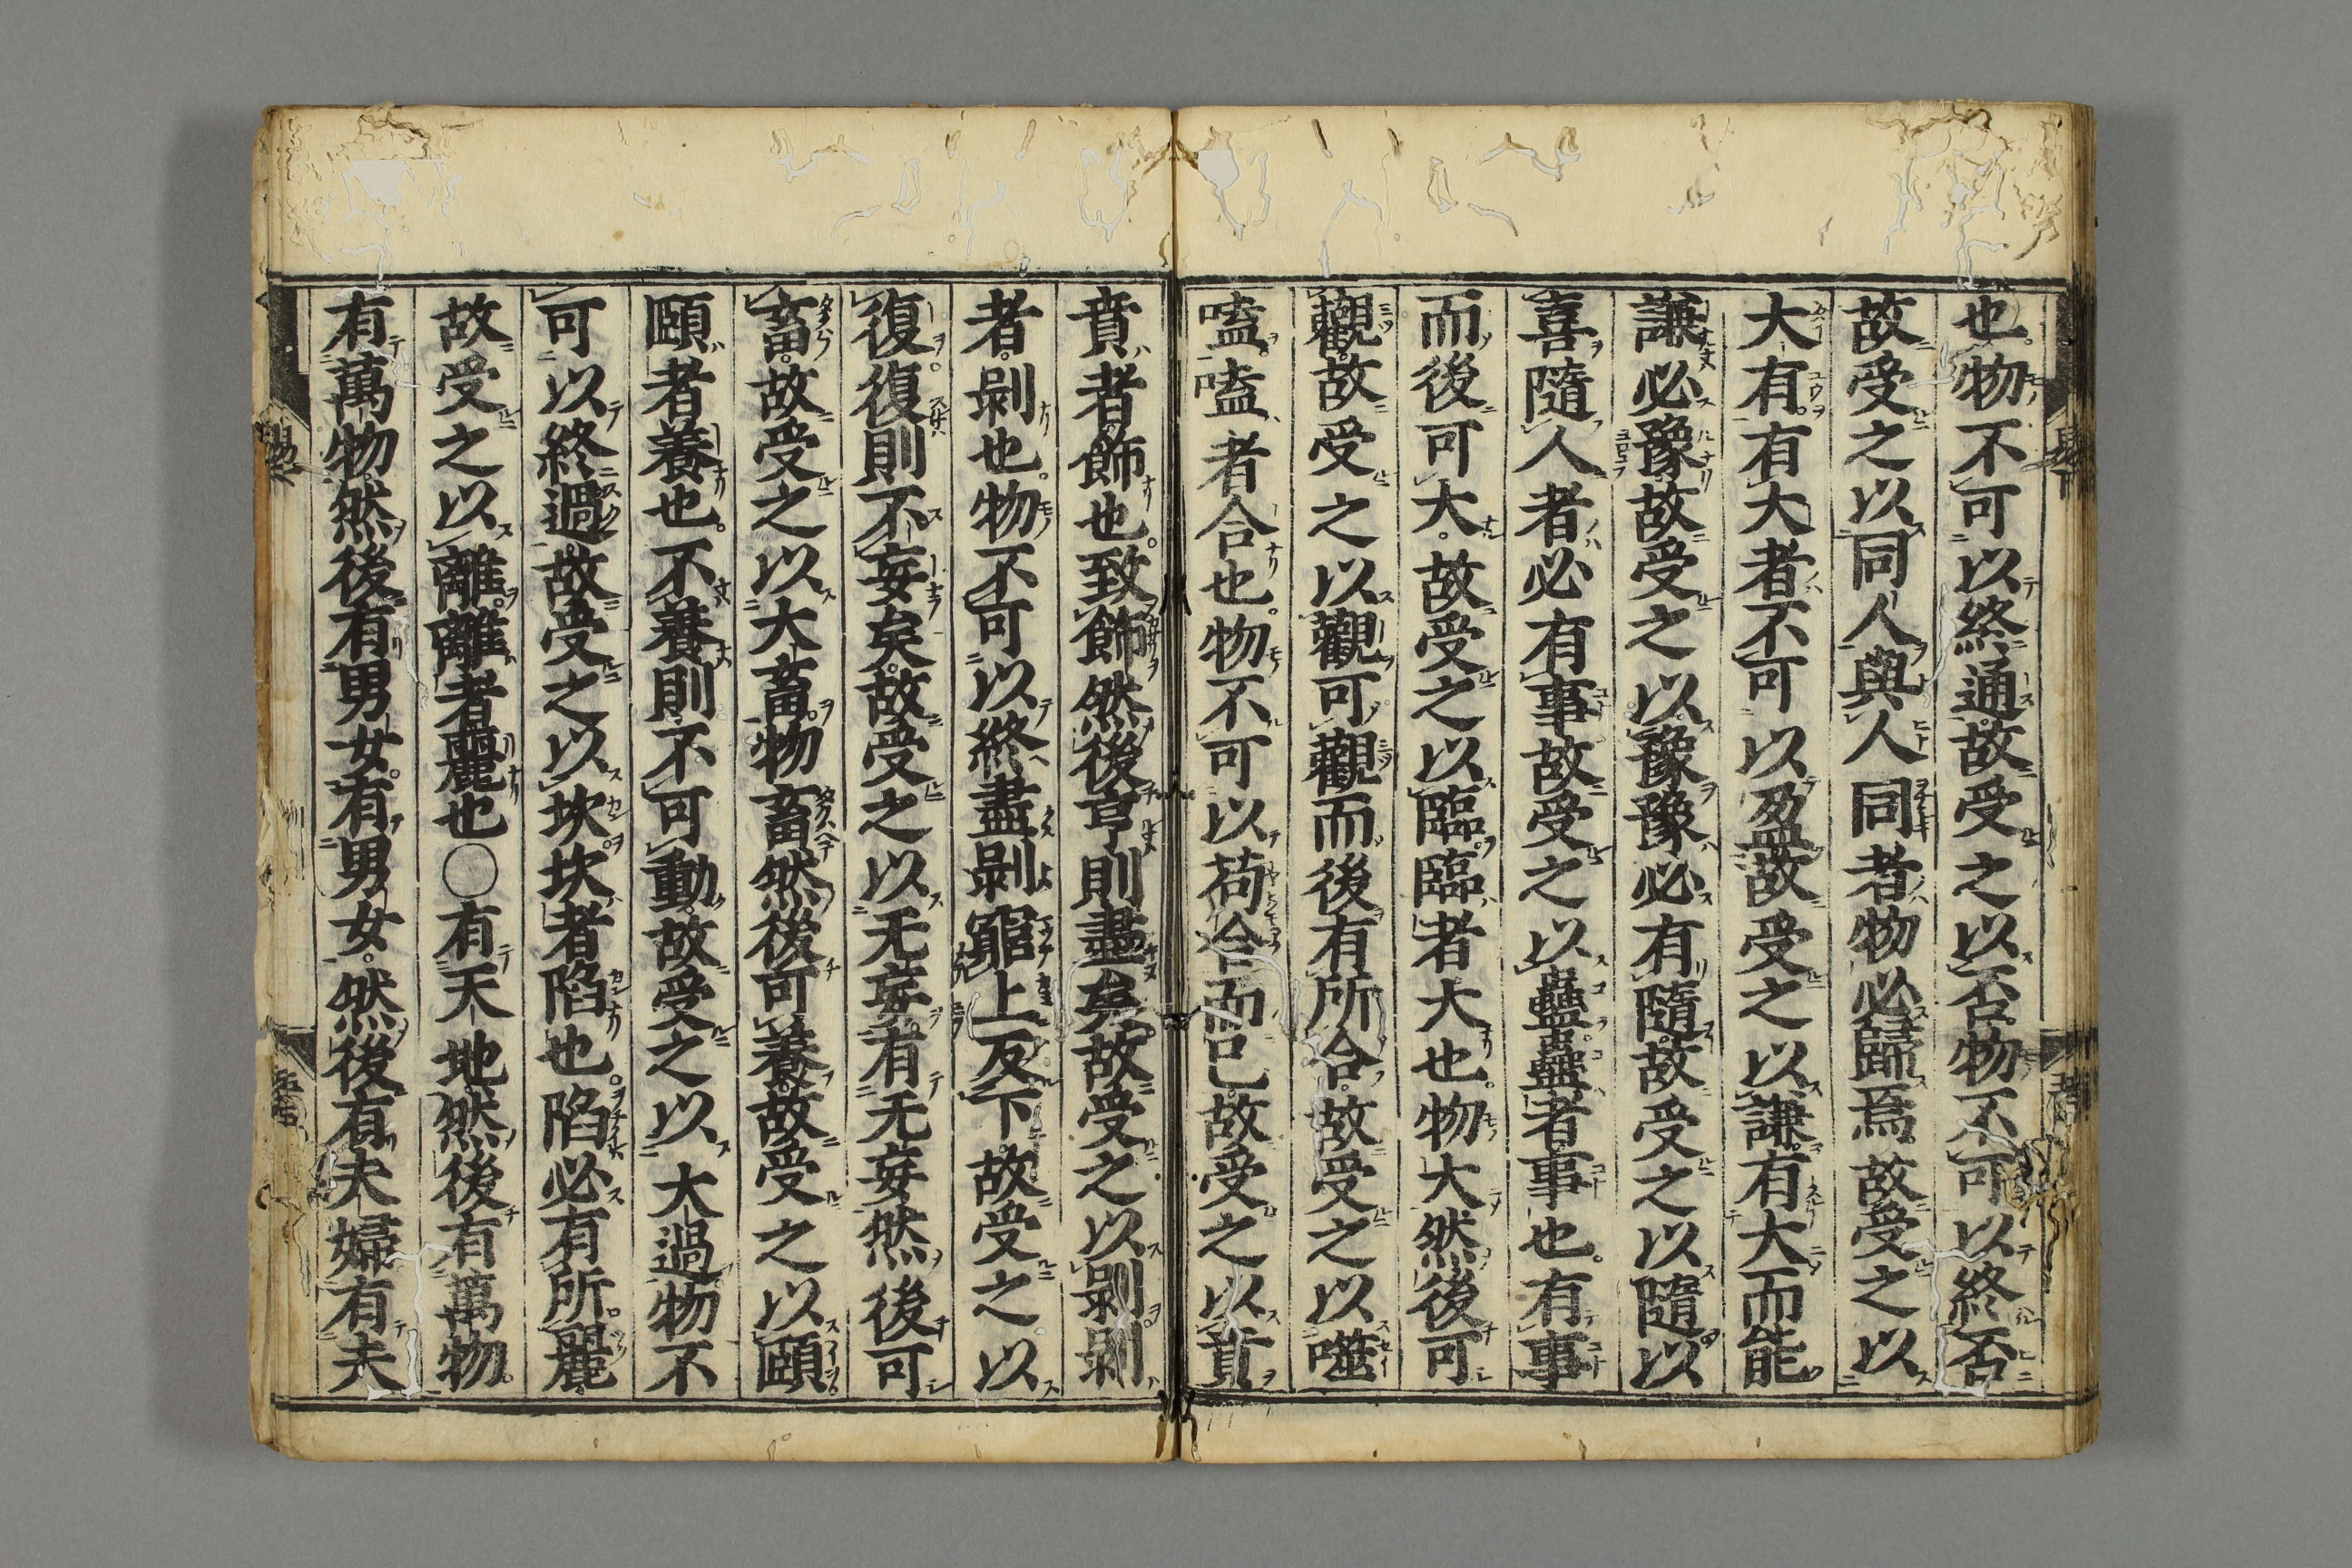 也物不可以終通故受之以否物不可以終否
故受之以同人與人同者物必歸焉故受之以
大有有大者不可以盈故受之以謙有大而能
謙必豫故受之以豫豫必有隨故受之以隨以
喜隨人者必有事故受之以蠱蠱者事也有事
而後可大故受之以臨臨者大也物大然後可
觀故受之以觀可觀而後有所合故受之以噬
嗑嗑者合也物不可以苟合而已故受之以賁
賁者飾也致飾然後亨則盡矣故受之以剥剥
者剥也物不可以終盡剥窮上反下故受之以
復復則不妄矣故受之以无妄有无妄然後可
畜故受之以大畜物畜然後可養故受之以頤
頤者養也不養則不可動故受之以大過物不
可以終過故受之以坎坎者陷也陷必有所麗
故受之以離離者麗也〇有天地然後有萬物
有萬物然後有男女有男女然後有夫婦有夫